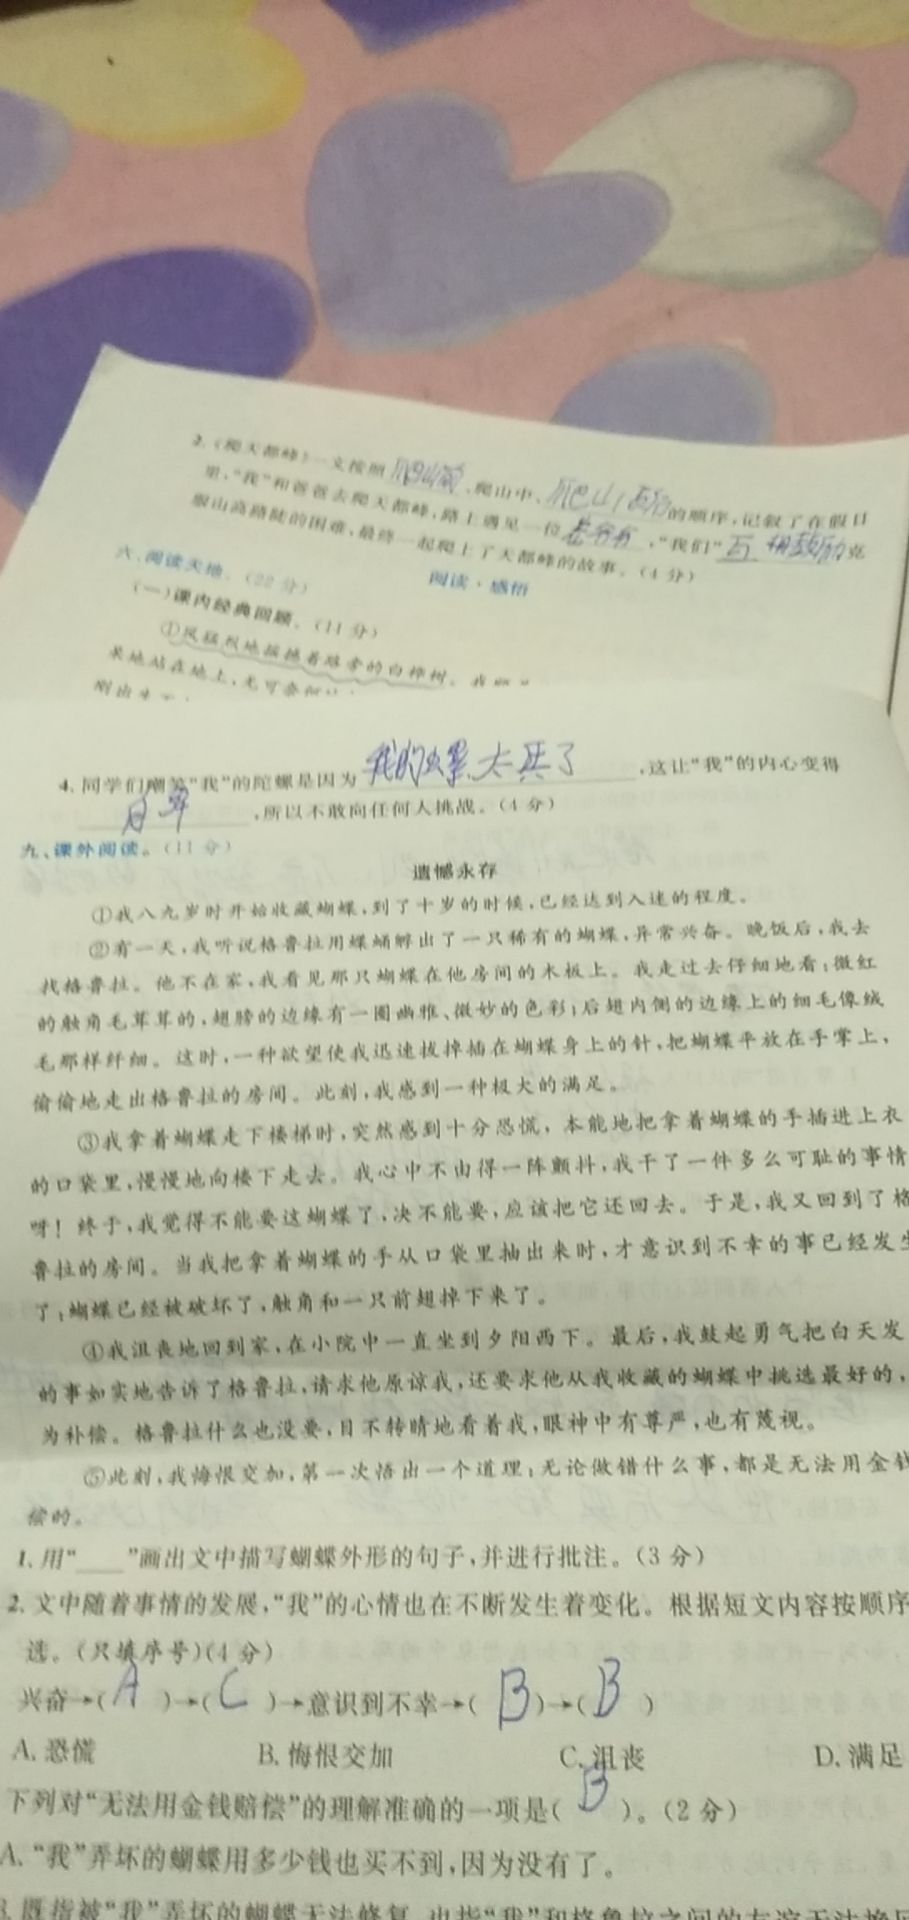 2.《爬天都峰》一文按照爬山前、爬山中、爬山后的顺序,记叙了在假日
里,“我”和爸爸去爬天都峰,路上遇见一位老爷爷,“我们”互相鼓励克
服山高路陡的困难,最终一起爬上了天都峰的故事。(4分)
阅读·感悟
六、阅读天地。(22分)
(一)课内经典回顾。(11分)
①风猛烈地摇撼着路旁的白桦树。我
呆地站在地上,无可奈何
刚出生
4.同学们嘲笑“我”的陀螺是因为我的 太 了,这让“我”的内心变得
自卑,所以不敢向任何人挑战。(4分)
九、课外阅读。(11分)
遗憾永存
①我八九岁时开始收藏蝴蝶,到了十岁的时候,已经达到入迷的程度。
②有一天,我听说格鲁拉用蝶蛹孵出了一只稀有的蝴蝶,异常兴奋。晚饭后,我去
找格鲁拉。他不在家,我看见那只蝴蝶在他房间的木板上。我走过去仔细地看:微红
的触角毛茸茸的,翅膀的边缘有一圈幽雅、微妙的色彩;后翅内侧的边缘上的细毛像绒
毛那样纤细。这时,一种欲望使我迅速拔掉插在蝴蝶身上的针,把蝴蝶平放在手掌上,
偷偷地走出格鲁拉的房间。此刻,我感到一种极大的满足。
③我拿着蝴蝶走下楼梯时,突然感到十分恐慌,本能地把拿着蝴蝶的手插进上衣
的口袋里,慢慢地向楼下走去。我心中不由得一阵颤抖,我干了一件多么可耻的事情
呀！终于,我觉得不能要这蝴蝶了,决不能要,应该把它还回去。于是,我又回到了格
鲁拉的房间。当我把拿着蝴蝶的手从口袋里抽出来时,才意识到不幸的事已经发生
了:蝴蝶已经被破坏了,触角和一只前翅掉下来了。
④我沮丧地回到家,在小院中一直坐到夕阳西下。最后,我鼓起勇气把白天发
的事如实地告诉了格鲁拉,请求他原谅我,还要求他从我收藏的蝴蝶中挑选最好的,
为补偿。格鲁拉什么也没要,目不转睛地看着我,眼神中有尊严,也有蔑视。
⑤此刻,我悔恨交加,第一次悟出一个道理:无论做错什么事,都是无法用金钱
偿的。
1.用“___”画出文中描写蝴蝶外形的句子,并进行批注。(3分)
2.文中随着事情的发展,“我”的心情也在不断发生着变化。根据短文内容按顺序
选。(只填序号)(4分)
兴奋→( A )→( C )→意识到不幸→( B )→( B )
A.恐慌 B.悔恨交加 C.沮丧 D.满足
下列对“无法用金钱赔偿”的理解准确的一项是( B )。(2分)
A.“我”弄坏的蝴蝶用多少钱也买不到,因为没有了。
B.既指被“我”弄坏的蝴蝶无法修复,也指“我”和格鲁拉之间的友谊无法挽回